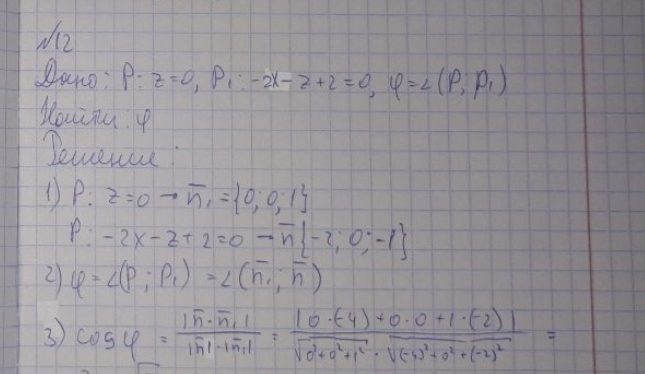 №12
Дано: P: z=0, P₁: -2x-z+2=0, φ=∠(P; P₁)
Найти: φ
Решение:
1) P: z=0 → n̅₁={0; 0; 1}
P: -2x-z+2=0 → n̅{-2; 0; -1}
2) φ=∠(P; P₁) = ∠(n̅₁; n̅)
3) cos φ = |n̅·n̅₁| / |n̅|·|n̅₁| = |0·(-4)+0·0+1·(-2)| / √0²+0²+1² · √(-4)²+0²+(-2)² =